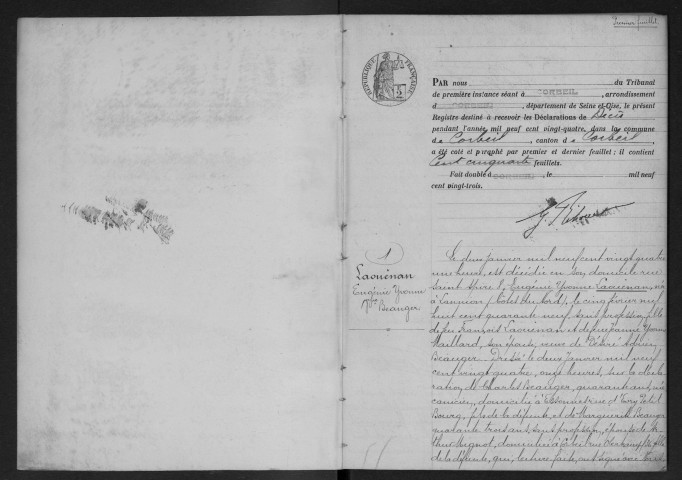 Premier feuillet
RÉPUBLIQUE FRANÇAISE
PAR nous du Tribunal
de première instance séant à CORBEIL, arrondissement
d CORBEIL, département de Seine-et-Oise, le présent
Registre destiné à recevoir les Déclarations de Décès
pendant l'année mil neuf cent vingt-quatre, dans la commune
d e Corbeil, canton d e Corbeil,
a été coté et paraphé par premier et dernier feuillet; il contient
Cent cinquante feuillets.
Fait double à CORBEIL, le mil neuf
cent vingt-trois.
1
Laouénan
Eugénie Yvonne
Vve Béanger
Le deux janvier mil neuf cent vingt quatre
une heure, est décédée en son domicile rue
Saint Spire 8, Eugénie Yvonne Laouénan, née
à Lannion (Côtes du Nord), le cinq février mil
huit cent quarante neuf, sans profession, fille
de feu François Laouénan et de feue Jeanne Yvonne
Maillard, son épouse, veuve de Désiré Adrien
Béanger. Dressé le deux Janvier mil neuf
cent vingt quatre, onze heures, sur la décla-
ration de Charles Béanger, quarante ans, mé-
canicien, domicilié à Essonnes rue d'Evry Petit
Bourg, fils de la défunte, et de Marguerite Béanger
quarante trois ans, sans profession, épouse de
Mignot, domiciliée à fille
de la défunte, qui, lecture faite, ont signé avec